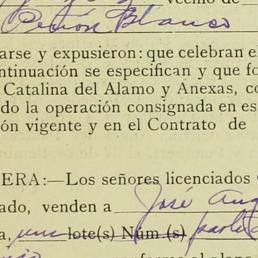 vecino de
Peñón Blanco
arse y expusieron: que celebran el
ntinuación se especifican y que fo
Catalina del Alamo y Anexas, co
do la operación consignada en es
ón vigente y en el Contrato de
ERA:—Los señores licenciados
ado, venden a José Ang
a, una lote(s) Núm.(s)